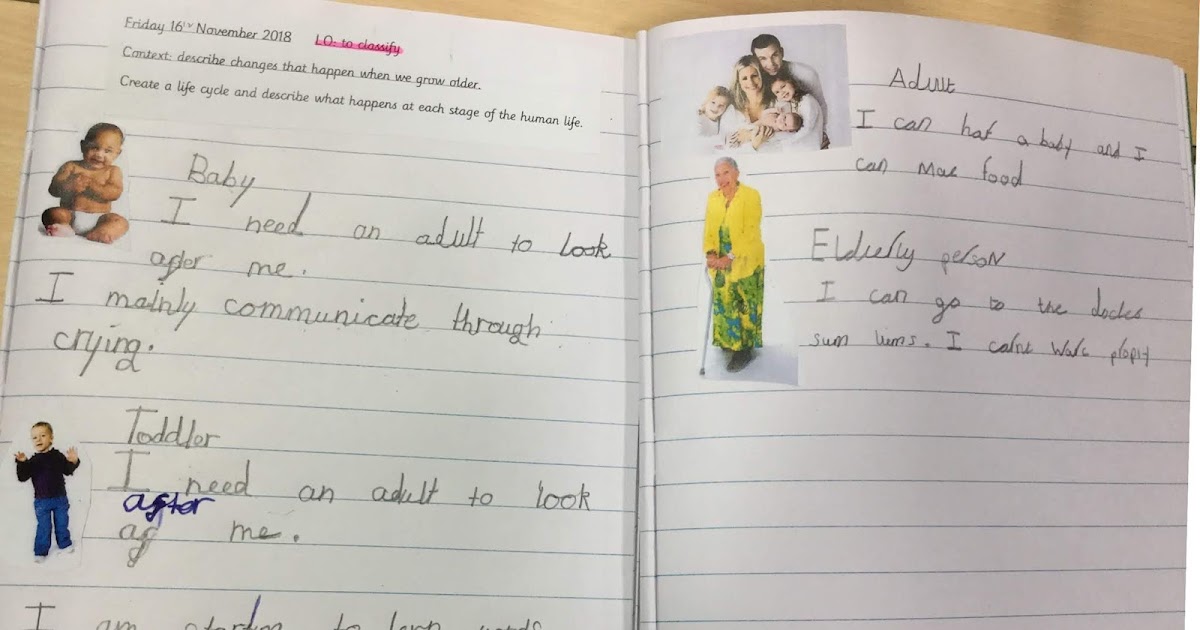 Friday 16th November 2018 LO: to classify
Context: describe changes that happen when we grow older.
Create a life cycle and describe what happens at each stage of the human life.
Baby
I need an adult to look
after me.
I mainly communicate through
crying.
Toddler
I need an adult to look
after
af me.
I am to words
Adult
I can haf a baby and I
can mac food
Elduerly person
I can go to the
sum tims. I walc